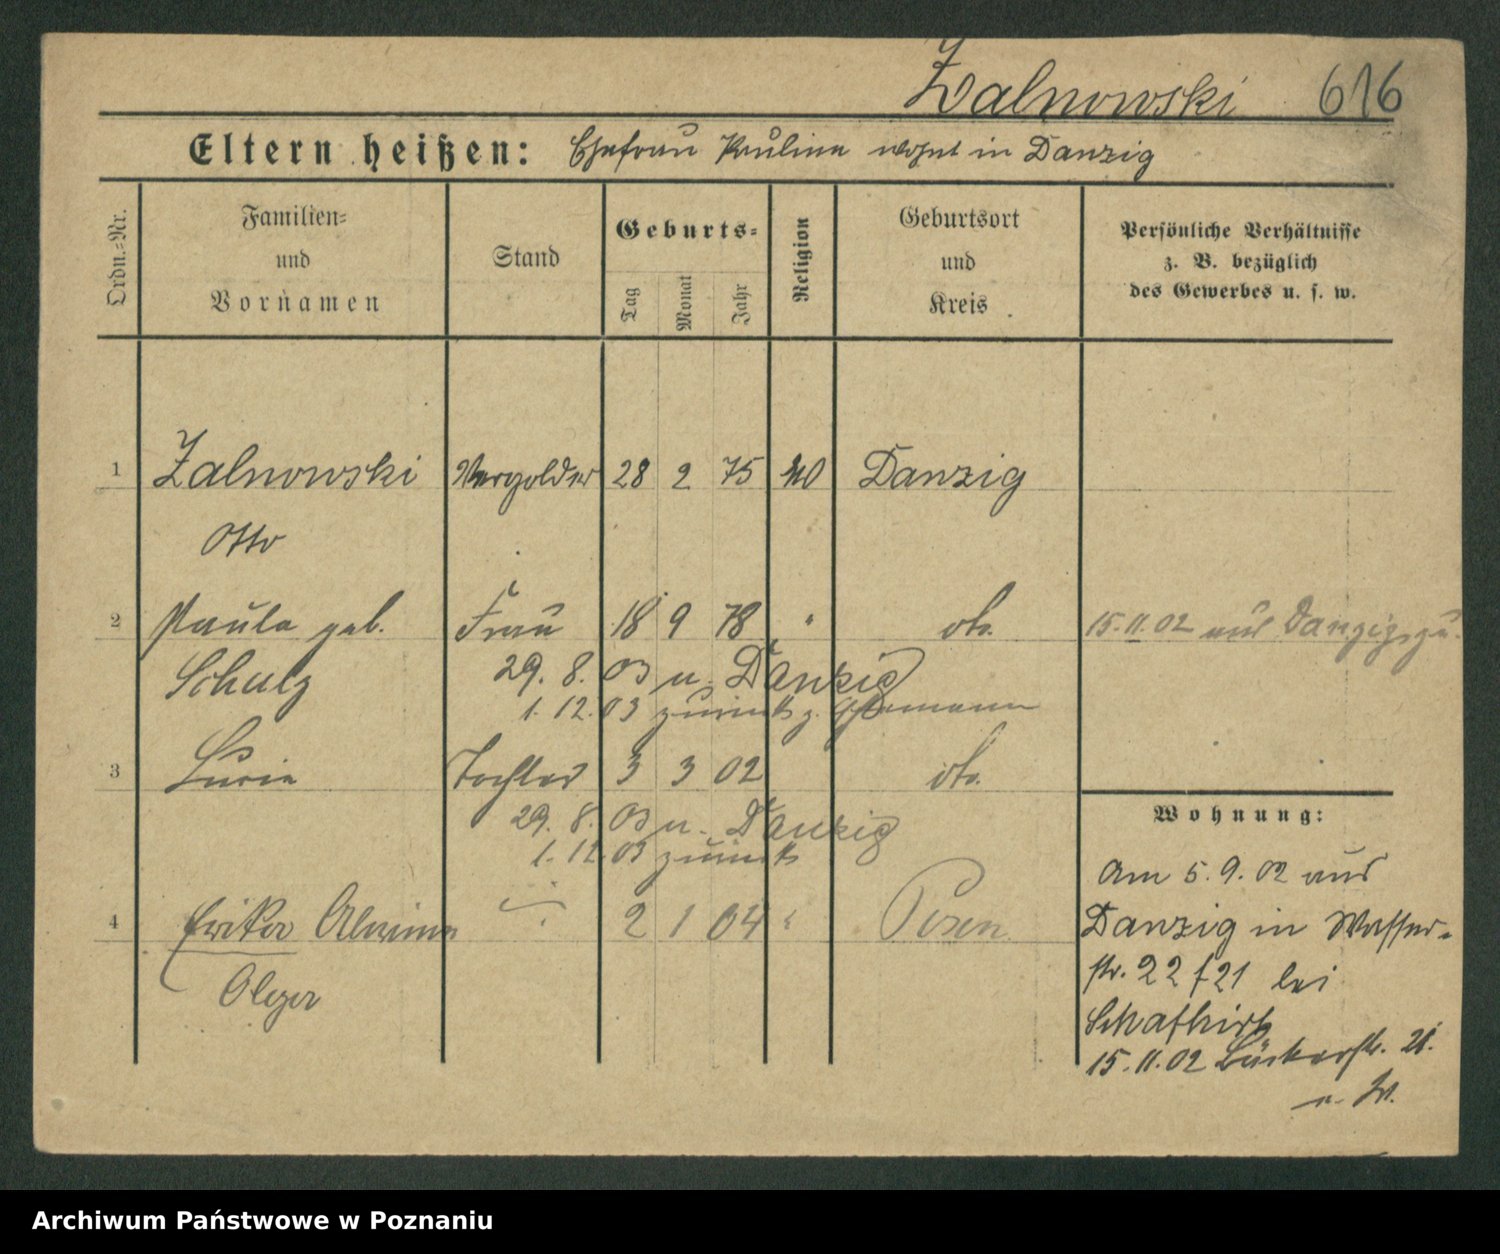 Zalnowski 616
Eltern heißen: Ehefrau Pauline wohnt in Danzig
Ordn.=Nr. Familien= und Vornamen Stand Geburts= Tag Monat Jahr Religion Geburtsort und Kreis Persönliche Verhältnisse z. B. bezüglich des Gewerbes u. s. w.
1 Zalnowski Vergolder 28 2 75 Danzig
Otto
2 Paula geb. Frau 18 9 78 " do. 15.11.02 aus Danzig zu.
Schulz 29. 8. 03 n. Danzig
1. 12. 03 zurück z. Ehemann
3 Tochter 3 3 02 do.
29. 8. 03 n. Danzig
1. 12. 03 zurück
Wohnung:
4 Erika 2 1 04 " Posen
Olga
Am 5. 9. 02 aus
Danzig in Wasser-
str. 22 / 21 bei
15. 11. 02 Bäckerstr. 21.
Archiwum Państwowe w Poznaniu